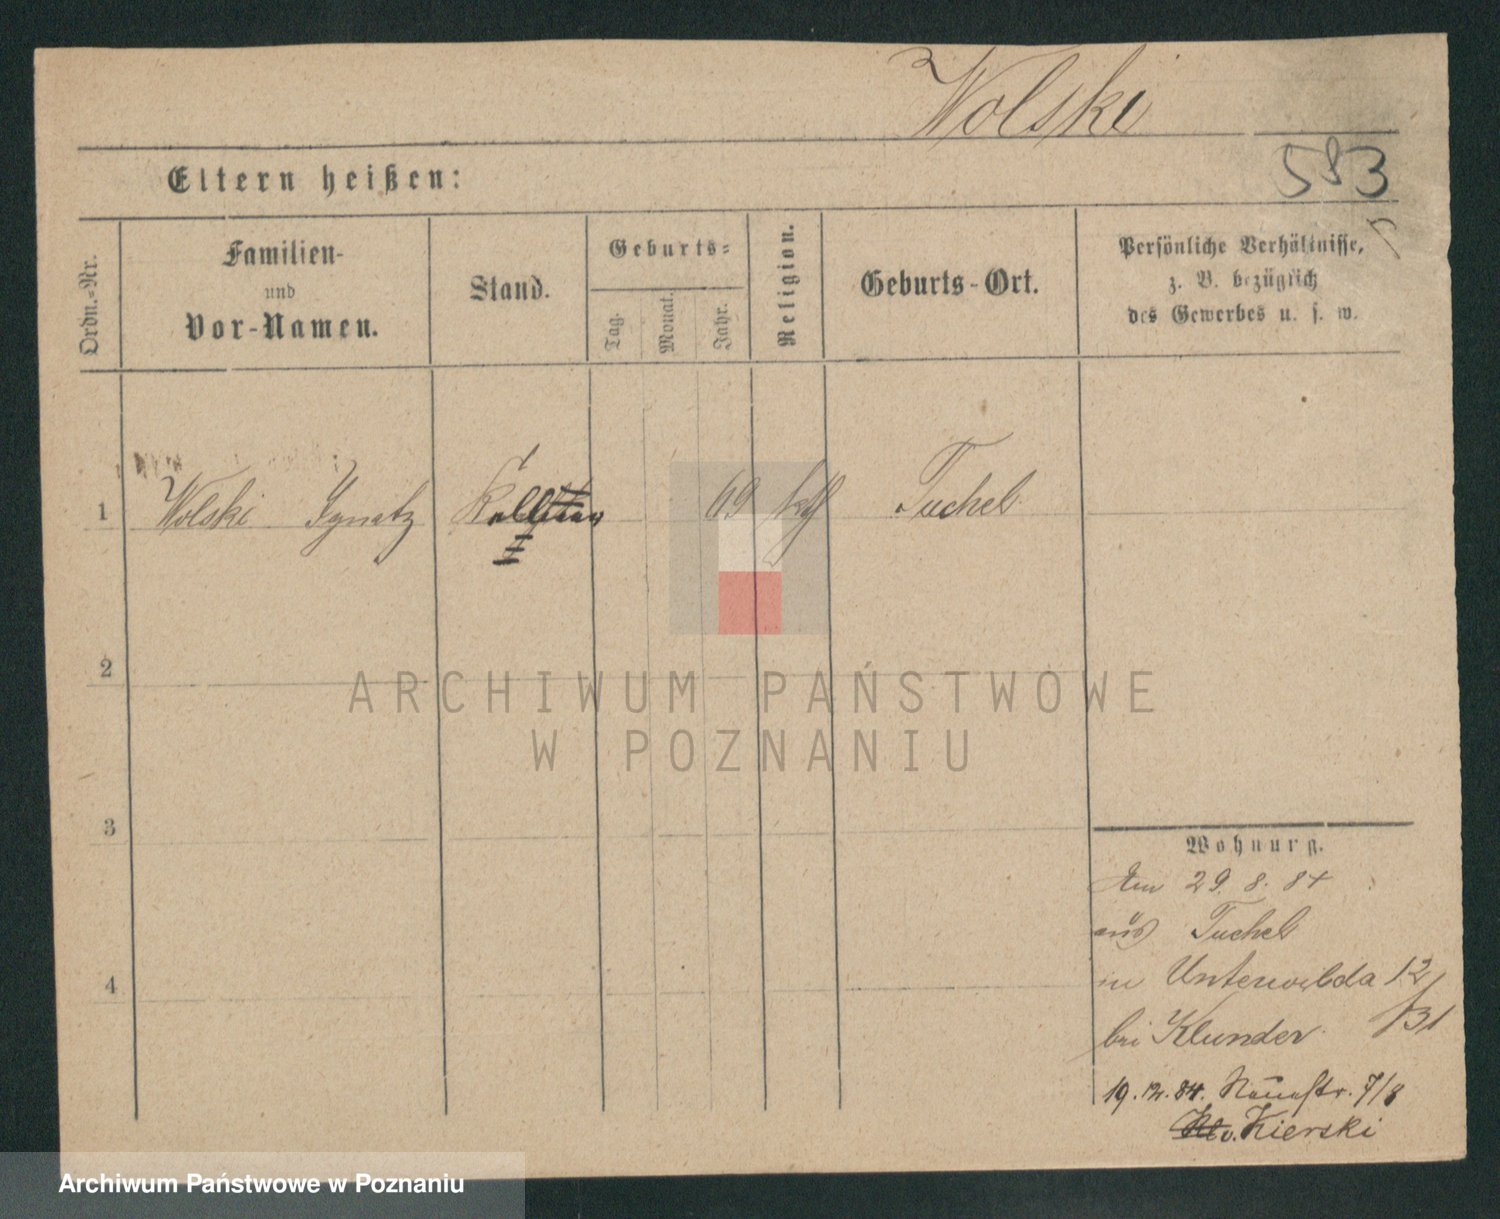 Wolski
583
Eltern heißen:
Ordn.-Nr.
Familien-
und
Vor-Namen.
Stand.
Geburts-
Tag.
Monat.
Jahr.
Religion.
Geburts-Ort.
Persönliche Verhältnisse,
z. B. bezüglich
des Gewerbes u. s. w.
1 Wolski Ignatz 69 kth Tuchel
2
3
4
Wohnung.
Am 29. 8. 84
aus Tuchel
in Unterwilda 12
bei Klunder B1
19. 12. 84. Neuestr. 7/8
v. Kierski
ARCHIWUM PAŃSTWOWE
W POZNANIU
Archiwum Państwowe w Poznaniu